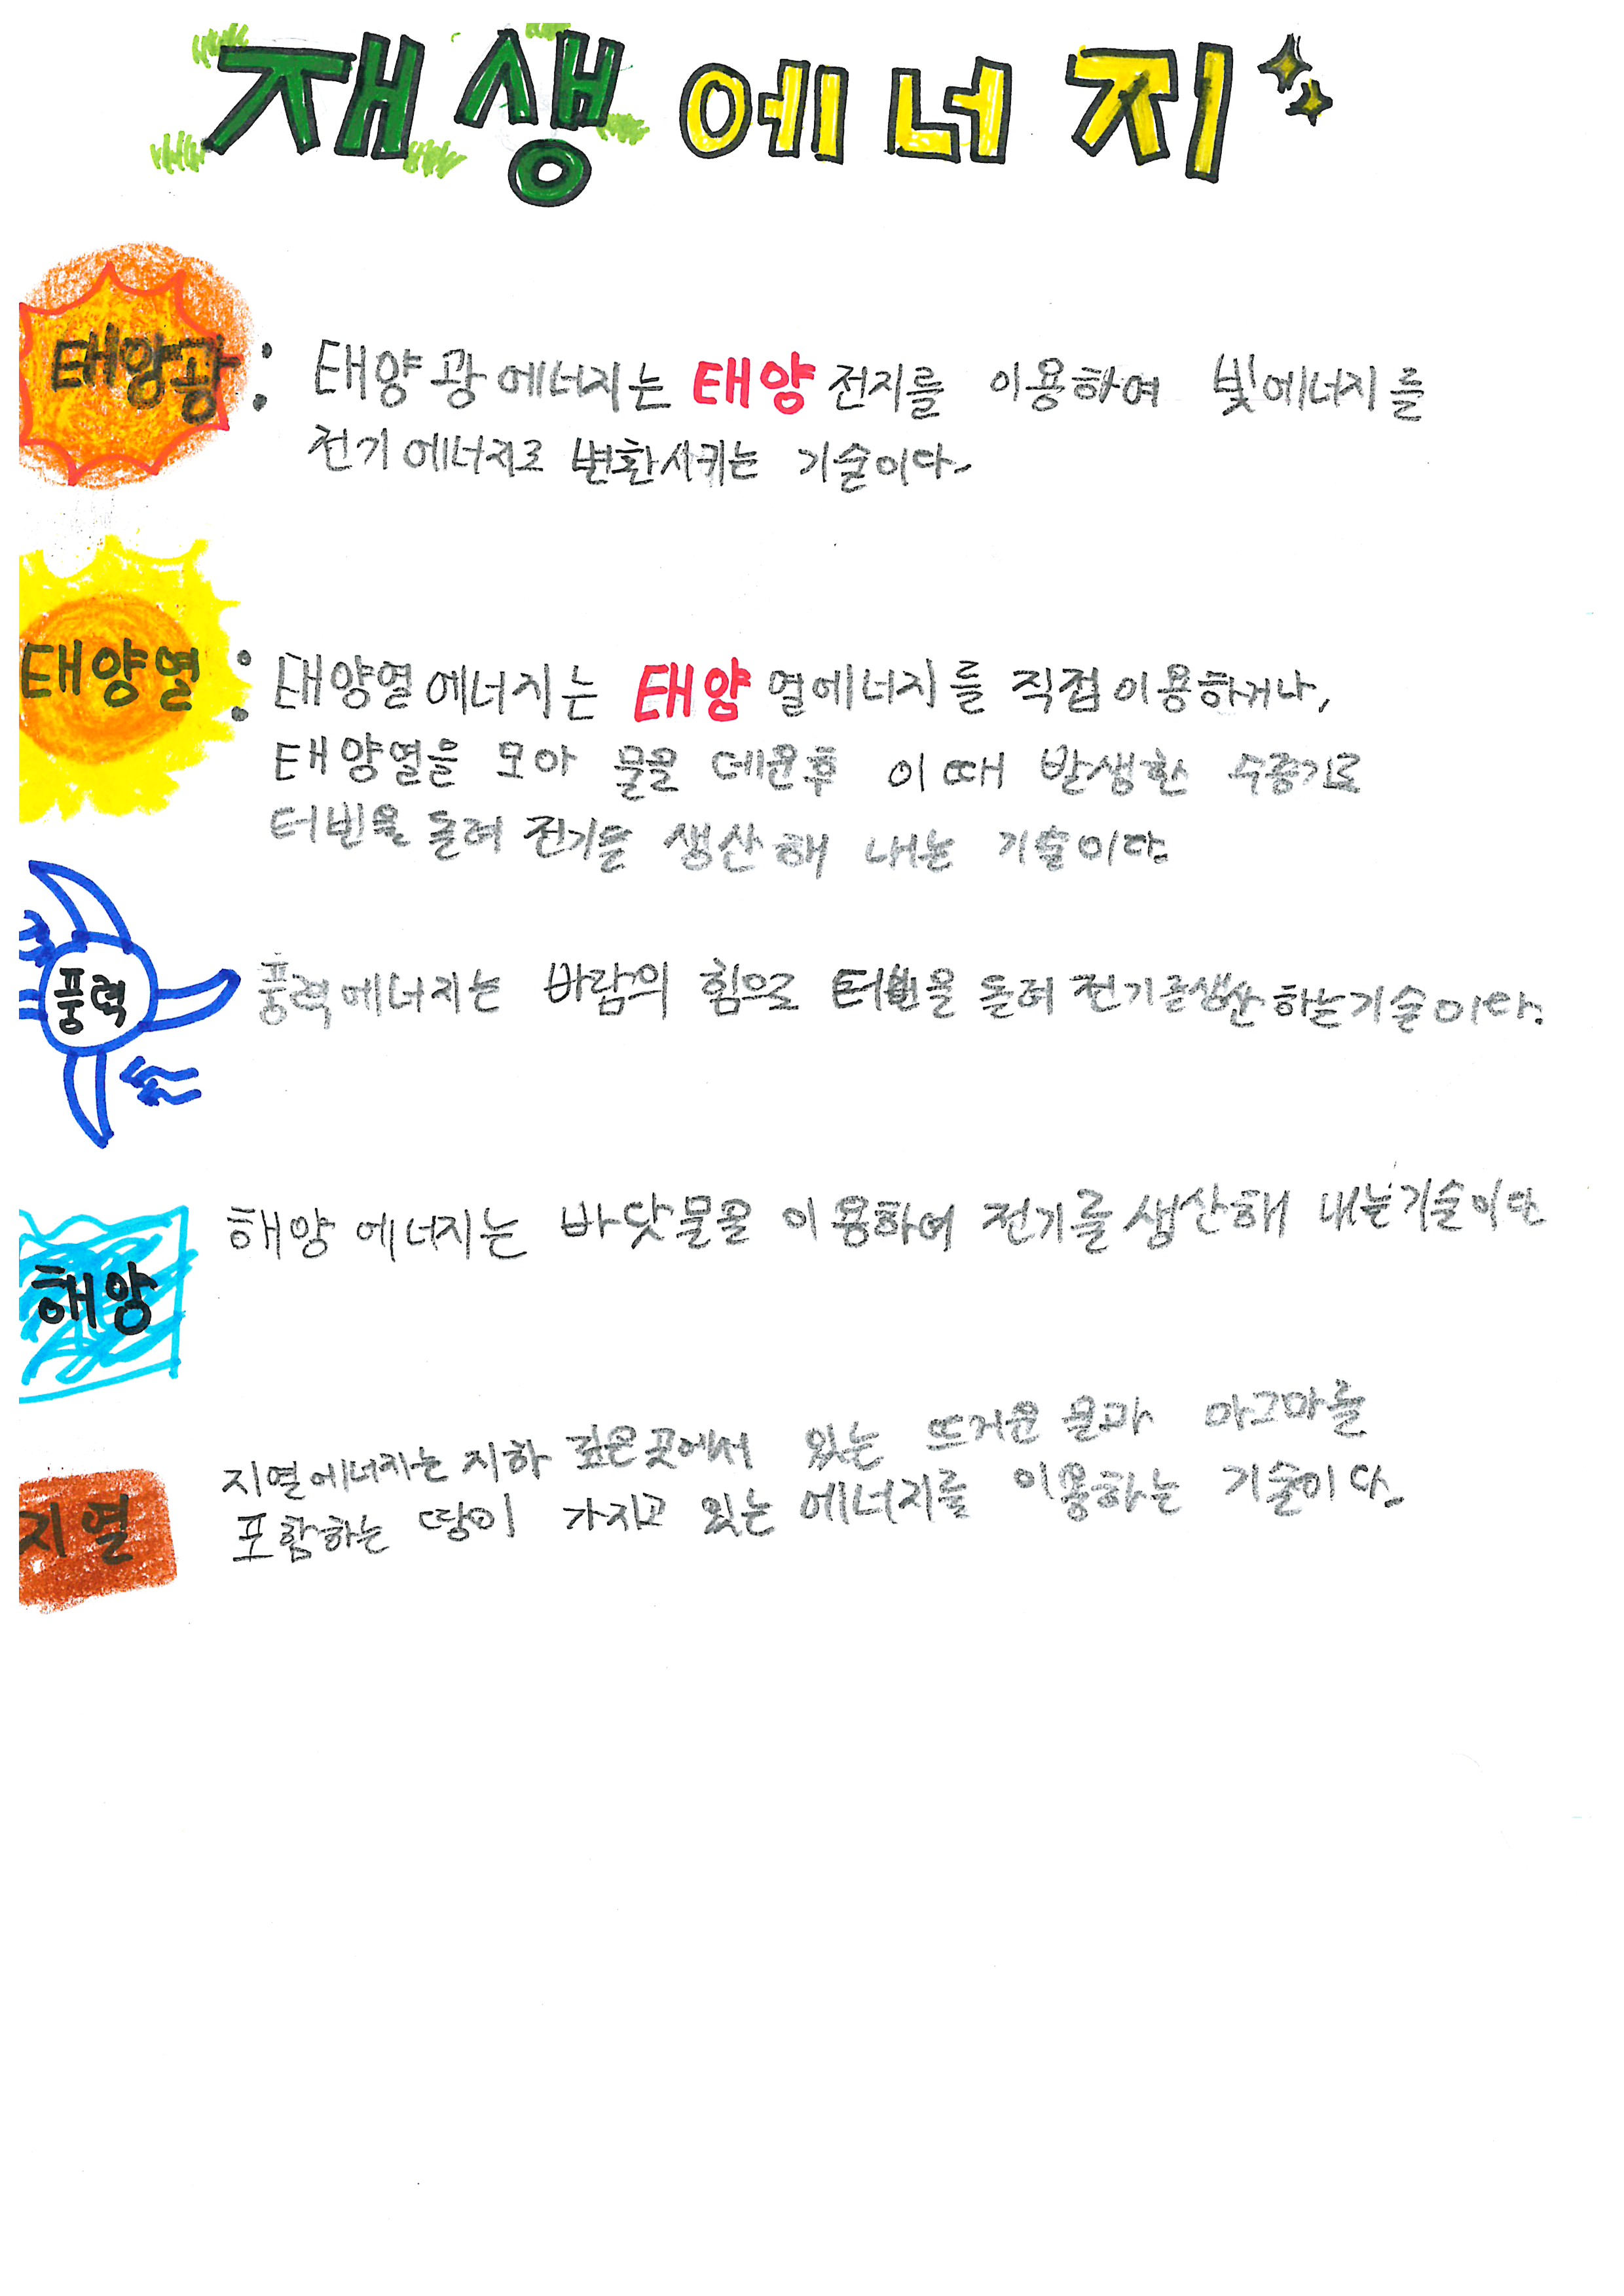 재생에너지
태양광 : 태양광에너지는 태양 전지를 이용하여 빛에너지를
전기에너지로 변환시키는 기술이다.
태양열 : 태양열에너지는 태양 열에너지를 직접 이용하거나,
태양열을 모아 물을 데운후 이때 발생한 수증기로
터빈을 돌려 전기를 생산해 내는 기술이다.
풍력 풍력에너지는 바람의 힘으로 터빈을 돌려 전기를생산하는기술이다.
해양 에너지는 바닷물을 이용하여 전기를 생산해 내는기술이다
해양
지열에너지는 지하 깊은곳에서 있는 뜨거운 물과 마그마를
지열 포함하는 땅이 가지고 있는 에너지를 이용하는 기술이다.